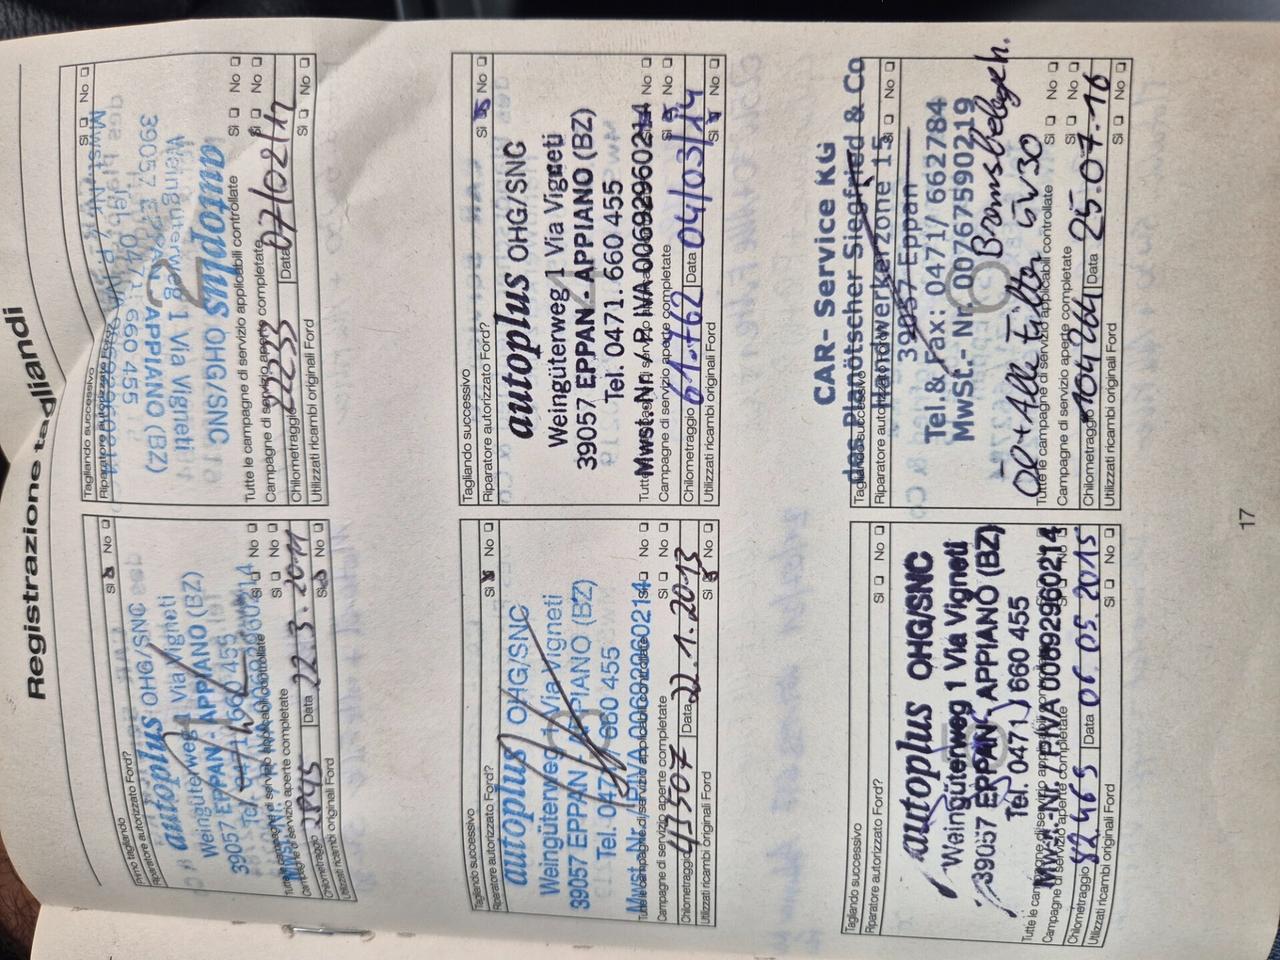 Registrazione tagliandi
Primo tagliando
Riparatore autorizzato Ford? Sì No
autoplus OHG/SNC
Weingüterweg 1 Via Vigneti
39057 EPPAN - APPIANO (BZ)
Tel. 0471. 660 455
Tutte le campagne di servizio applicabili controllate Sì No
Campagne di servizio aperte completate Sì No
Chilometraggio Data 22.3.2011
Utilizzati ricambi originali Ford Sì No
Tagliando successivo
Riparatore autorizzato Ford? Sì No
autoplus OHG/SNC
Weingüterweg 1 Via Vigneti
39057 EPPAN APPIANO (BZ)
0471. 660 455
Tutte le campagne di servizio applicabili controllate Sì No
Campagne di servizio aperte completate Sì No
Chilometraggio 22233 Data 07/02/12
Utilizzati ricambi originali Ford Sì No
Tagliando successivo
Riparatore autorizzato Ford? Sì No
autoplus OHG/SNC
Weingüterweg 1 Via Vigneti
39057 EPPAN - APPIANO (BZ)
Tel. 0471. 660 455
Mwst. Nr. / P. IVA 00692960214
Tutte le campagne di servizio applicabili controllate Sì No
Campagne di servizio aperte completate Sì No
Chilometraggio 43507 Data 22.1.2013
Utilizzati ricambi originali Ford Sì No
Tagliando successivo
Riparatore autorizzato Ford? Sì No
autoplus OHG/SNC
Weingüterweg 1 Via Vigneti
39057 EPPAN - APPIANO (BZ)
Tel. 0471. 660 455
Mwst. Nr. / P. IVA 00692960214
Campagne di servizio aperte completate Sì No
Chilometraggio 61.762 Data 04/03/14
Utilizzati ricambi originali Ford Sì No
Tagliando successivo
Riparatore autorizzato Ford? Sì No
autoplus OHG/SNC
Weingüterweg 1 Via Vigneti
39057 EPPAN - APPIANO (BZ)
Tel. 0471. 660 455
Mwst. Nr. / P. IVA 00692960214
Campagne di servizio aperte completate Sì No
Chilometraggio 82.469 Data 06.05.2015
Utilizzati ricambi originali Ford Sì No
CAR - Service KG
des Planötscher Siegfried & Co
Tagliando successivo
Riparatore autorizzato Sì No
Handwerkerzone 15
39057 Eppan
Tel.& Fax: 0471/ 662784
Mwst.- Nr. 00767590219
Öl + Alle Filter 5W30 Bremsbelegeh.
Tutte le campagne di servizio applicabili controllate Sì No
Campagne di servizio aperte completate Sì No
Chilometraggio 104264 Data 25.07.16
Utilizzati ricambi originali Ford Sì No
17